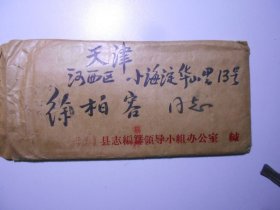 天津
河西区 小海注华山里13号
徐柏容 同志
县志编纂领导小组办公室 缄